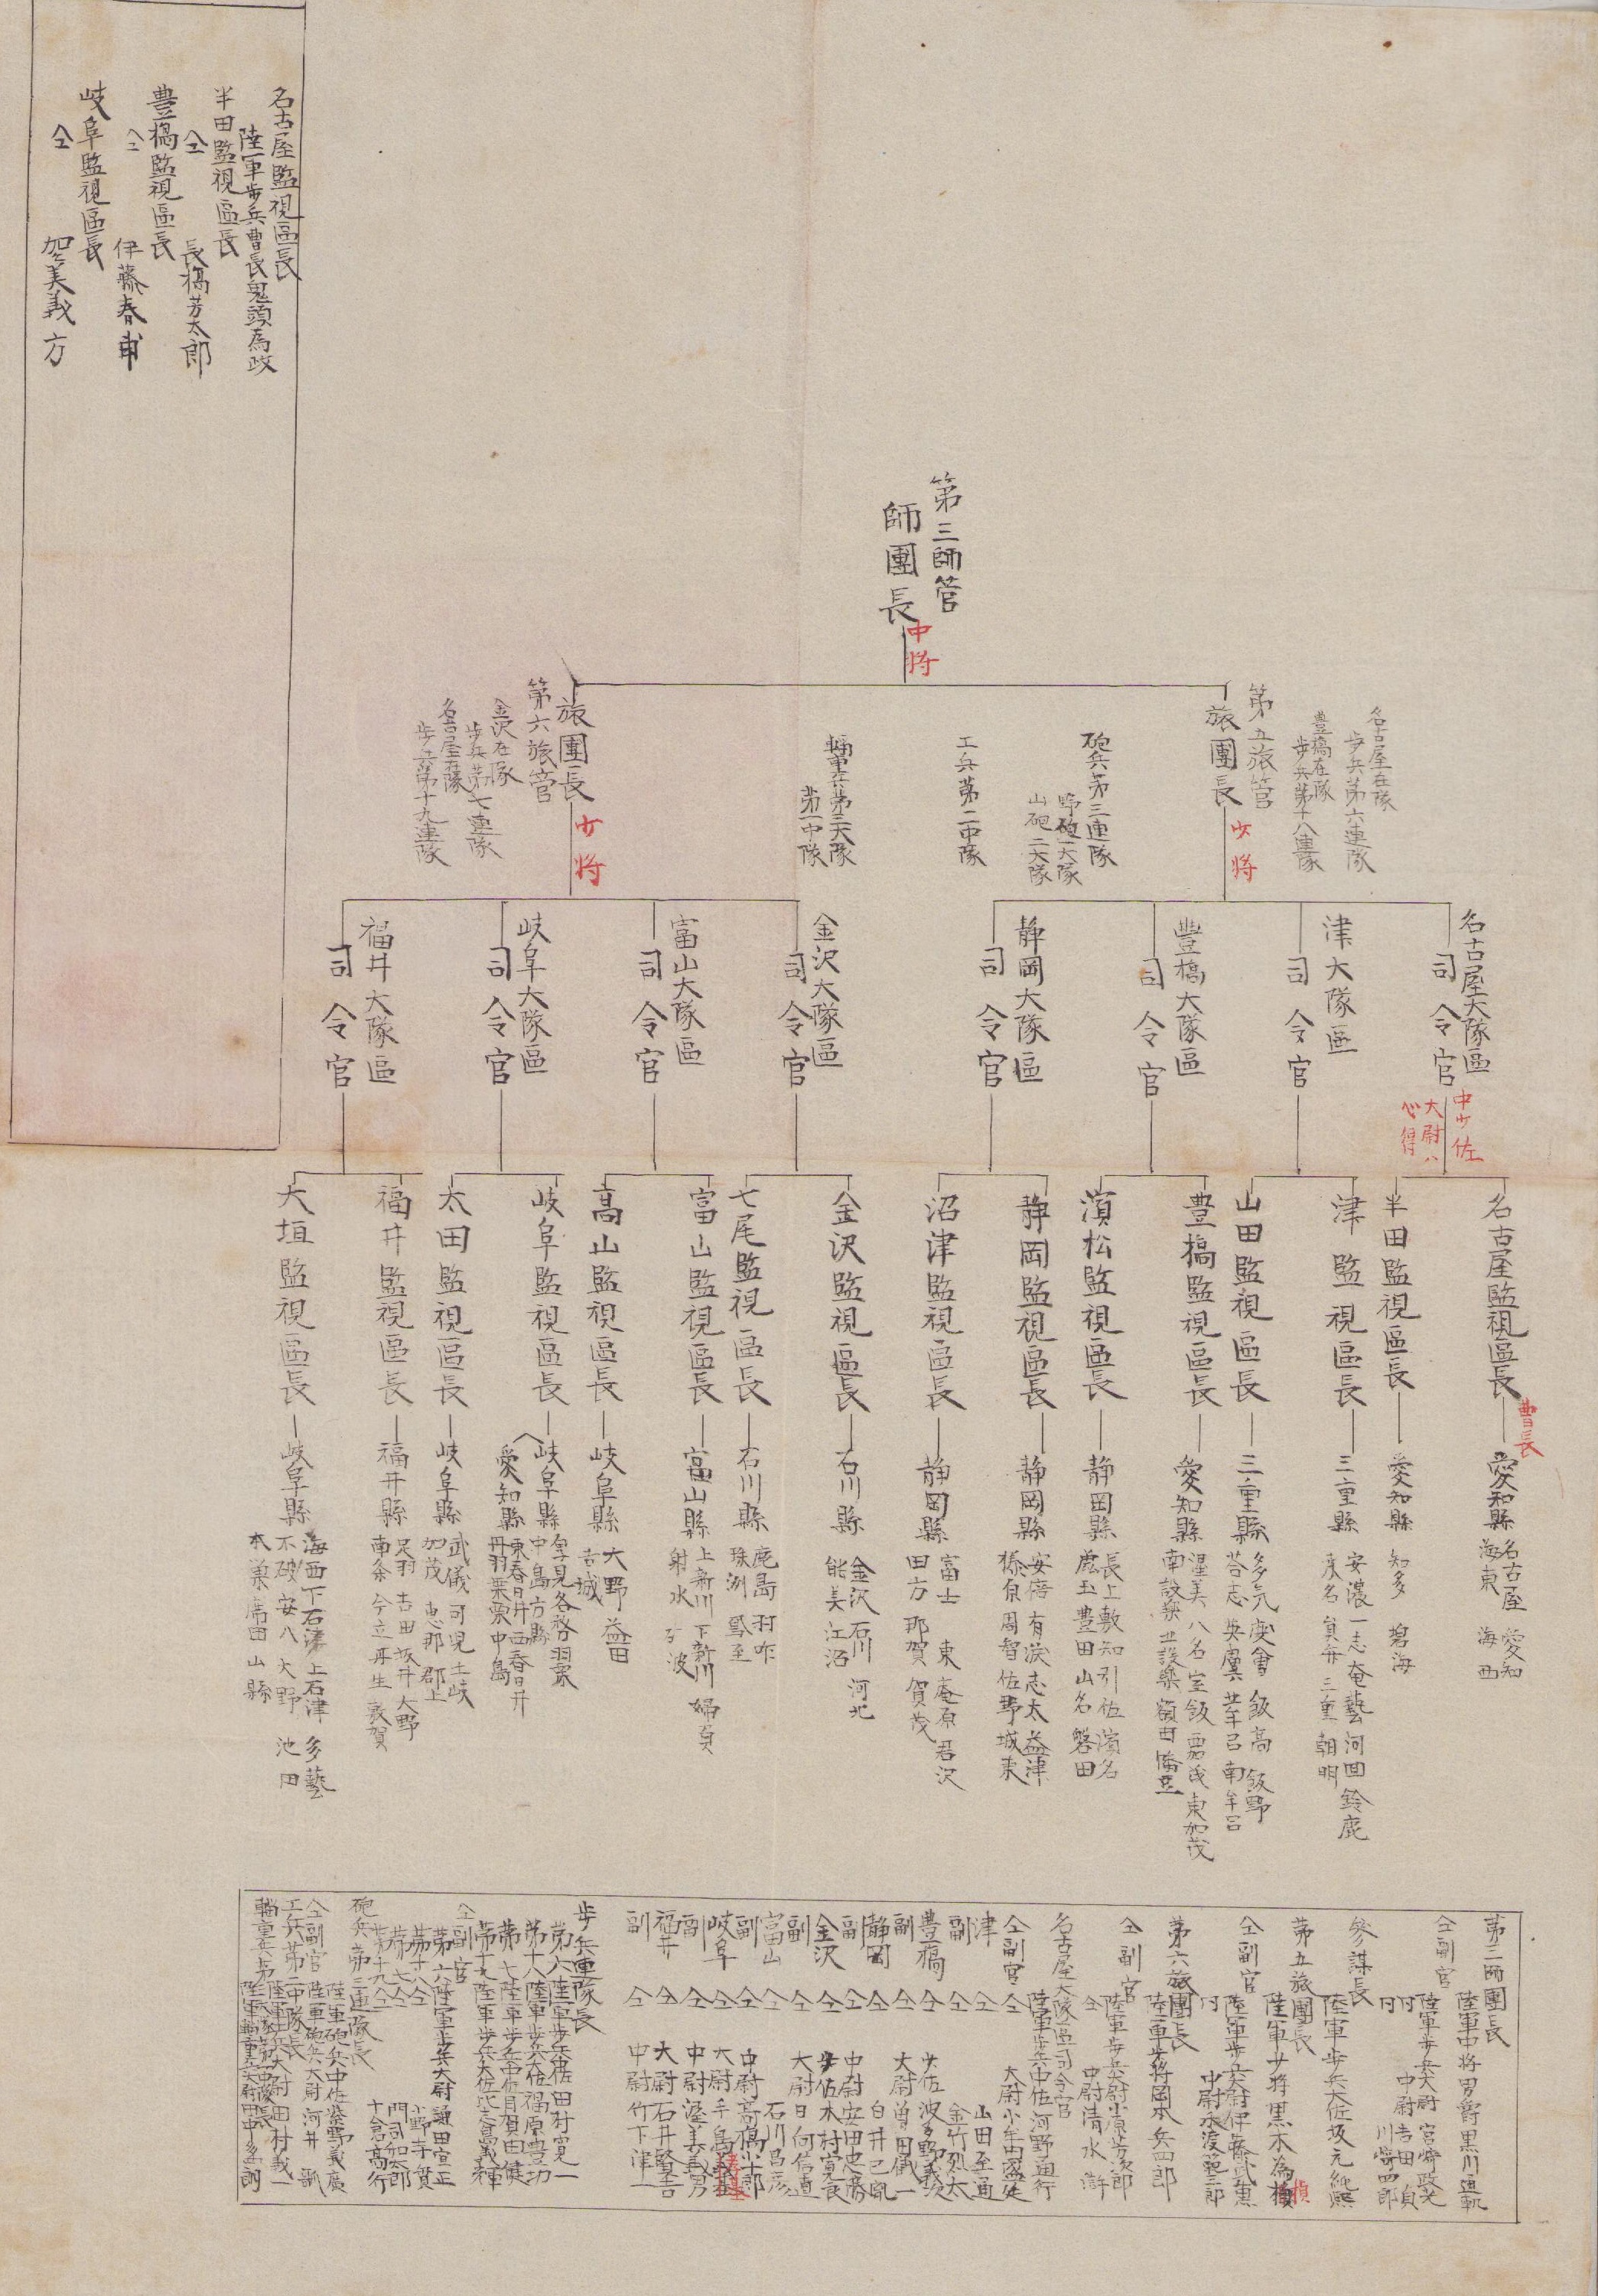 第三師管
師團長
中将
第五旅管
旅團長
少将
名古屋在隊
歩兵第六連隊
豊橋在隊
歩兵第十八連隊
砲兵第三連隊
野砲一大隊
山砲二大隊
工兵第二中隊
輜重兵第三大隊
第一中隊
第六旅管
旅團長
少将
金沢在隊
歩兵第七連隊
名古屋在隊
歩兵第十九連隊
名古屋大隊區
司令官
中少佐
大尉ハ
心得
津大隊區
司令官
豊橋大隊區
司令官
静岡大隊區
司令官
金沢大隊區
司令官
富山大隊區
司令官
岐阜大隊區
司令官
福井大隊區
司令官
名古屋監視區長
曹長
愛知縣
名古屋 愛知
海東 海西
半田監視區長
愛知縣
知多 碧海
津監視區長
三重縣
安濃 一志 奄藝 河曲 鈴鹿
桑名 員弁 三重 朝明
山田監視區長
三重縣
多気 度會 飯高 飯野
答志 英虞 北牟呂 南牟呂
豊橋監視區長
愛知縣
渥美 八名 宝飯 東加茂
南設楽 北設楽 額田 幡豆
濱松監視區長
静岡縣
長上 敷知 引佐 濱名
麁玉 豊田 山名 磐田
静岡監視區長
静岡縣
安倍 有渡 志太 益津
榛原 周智 佐野 城東
沼津監視區長
静岡縣
富士 東 庵原 君沢
田方 那賀 賀茂
金沢監視區長
石川縣
金沢 石川 河北
能美 江沼
七尾監視區長
石川縣
鹿島 羽咋
珠洲 鳳至
富山監視區長
富山縣
上新川 下新川 婦負
射水 砺波
高山監視區長
岐阜縣
大野 益田
吉城
岐阜監視區長
岐阜縣
厚見 各務 羽栗
中島 方縣
愛知縣
東春日井 西春日井
丹羽 葉栗 中島
太田監視區長
岐阜縣
武儀 可児 土岐
加茂 恵那 郡上
福井監視區長
福井縣
足羽 吉田 坂井 大野
南条 今立 丹生 敦賀
大垣監視區長
岐阜縣
海西 下石津 上石津 多藝
不破 安八 大野 池田
本巣 席田 山縣
名古屋監視區長
陸軍歩兵曹長鬼頭為政
半田監視區長
仝 長橋芳太郎
豊橋監視區長
仝 伊藤春甫
岐阜監視區長
仝 加々美義方
第三師團長
陸軍中将男爵黒川通軌
仝副官
陸軍歩兵大尉 宮崎政光
中尉 吉田貞
川崎四郎
参謀長
陸軍歩兵大佐坂元純熈
第五旅團長
陸軍少将黒木為楨
楨
仝副官
陸軍歩兵大尉伊藤武憲
中尉水渡範三郎
第六旅團長
陸軍少将岡本兵四郎
仝副官
陸軍歩兵大尉小原芳次郎
仝 中尉清水滸
名古屋大隊區司令官
陸軍歩兵中佐河野通行
仝副官 仝 大尉小牟田盛従
津 仝 山田至通
副 仝 金竹烈太
豊橋 仝 少佐 波多野義次
副 仝 大尉曽田誠一
静岡 仝 白井已凮
副 仝 中尉安田忠斎
金沢 仝 少佐木村寛長
副 仝 大尉日向信直
富山 仝 石川昌彦
副 仝 中尉高橋小十郎
岐阜 仝 大尉手島
副 仝 中尉渥美義男
福井 仝 大尉石井賢吉
副 仝 中尉竹下津一
歩兵連隊長
第六 陸軍歩兵中佐田村寛一
第十八 陸軍歩兵大佐福原豊功
第七 陸軍歩兵中佐
第十九 陸軍歩兵大佐比志島義輝
仝副官
第六 陸軍歩兵大尉 鎌田宜正
第十八 仝 小野寺實
第七 仝 門司和太郎
第十九 仝 十倉高行
砲兵第三連隊長
陸軍砲兵中佐柴野義廣
仝副官 陸軍砲兵大尉 河井
工兵第二中隊長
陸軍工兵大尉田村義一
輜重兵第三
陸軍輜重兵大尉田中多喜朗